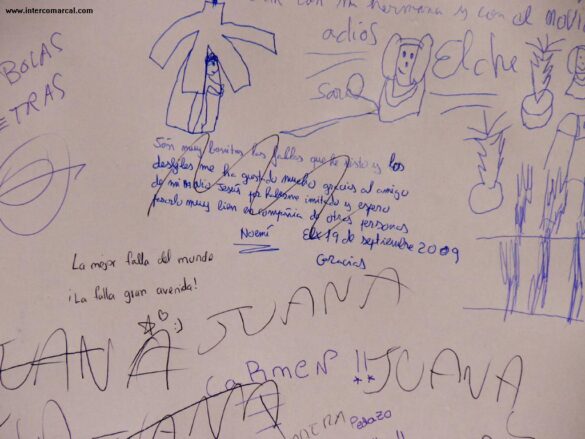 www.intercomarcal.com
con mi hermana y con el
adiós
BOLAS
TRAS
Sara
Elche
Son muy bonitas las fallas que he visto y los
desfiles me ha gustado mucho gracias al amigo
de mi novio Jesús por haberme invitado y espero
pasarlo muy bien en compañia de otras personas
Noemí
19 de septiembre 2009
Gracias
La mejor falla del mundo
¡La falla gran avenida!
JUANA
JUANA
CARMEN !!
JUANA